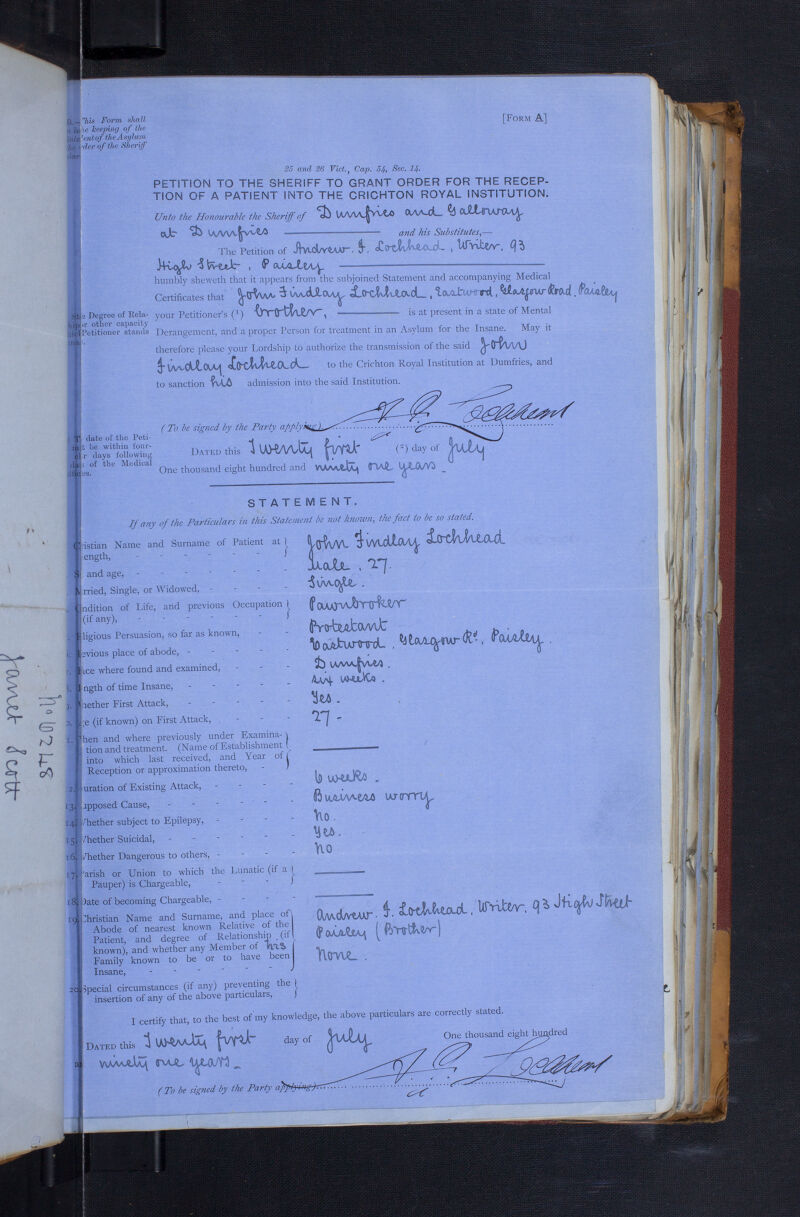 This Form shall
keeping of the
of the Asylum
of the Sheriff
[FORM A]
25 and 26 Vict., Cap. 54, Sec. 14.
PETITION TO THE SHERIFF TO GRANT ORDER FOR THE RECEP-
TION OF A PATIENT INTO THE CRICHTON ROYAL INSTITUTION.
Unto the Honourable the Sheriff of Dumfries and Galloway
at Dumfries and his Substitutes,—
The Petition of Andrew. F. Lochhead, Writer. 93
High Street, Paisley
humbly sheweth that it appears from the subjoined Statement and accompanying Medical
Certificates that John Findlay Lochhead, Eastwood, Glasgow Road, Paisley
Degree of Rela-
other capacity
Petitioner stands
your Petitioner's (1) brother, is at present in a state of Mental
Derangement, and a proper Person for treatment in an Asylum for the Insane. May it
therefore please your Lordship to authorize the transmission of the said John
Findlay Lochhead to the Crichton Royal Institution at Dumfries, and
to sanction his admission into the said Institution.
(To be signed by the Party applying) A. F. Lochhead
date of the Peti-
be within four-
days following
of the Medical
DATED this Twenty first (2) day of July
One thousand eight hundred and ninety one years
STATEMENT.
If any of the Particulars in this Statement be not known, the fact to be so stated.
Christian Name and Surname of Patient at length, John Findlay Lochhead
and age, Male, 27.
Married, Single, or Widowed, Single.
Condition of Life, and previous Occupation (if any), Pawnbroker
Religious Persuasion, so far as known, Protestant
Previous place of abode, Eastwood, Glasgow Rd., Paisley.
Place where found and examined, Dumfries.
Length of time Insane, six weeks.
Whether First Attack, Yes.
Age (if known) on First Attack, 27-
When and where previously under Examina-
tion and treatment. (Name of Establishment
into which last received, and Year of
Reception or approximation thereto,
Duration of Existing Attack, 6 weeks.
13. Supposed Cause, Business worry
14. Whether subject to Epilepsy, No.
15. Whether Suicidal, Yes.
16. Whether Dangerous to others, No
17. Parish or Union to which the Lunatic (if a
Pauper) is Chargeable,
18. Date of becoming Chargeable,
19. Christian Name and Surname, and place of
Abode of nearest known Relative of the
Patient, and degree of Relationship (if
known), and whether any Member of his
Family known to be or to have been
Insane,
Andrew. F. Lochhead, Writer. 93 High Street
Paisley (Brother)
None.
20. Special circumstances (if any) preventing the
insertion of any of the above particulars,
I certify that, to the best of my knowledge, the above particulars are correctly stated.
DATED this Twenty first day of July One thousand eight hundred
ninety one years
(To be signed by the Party applying) A. F. Lochhead
No 6248
Janet Scott